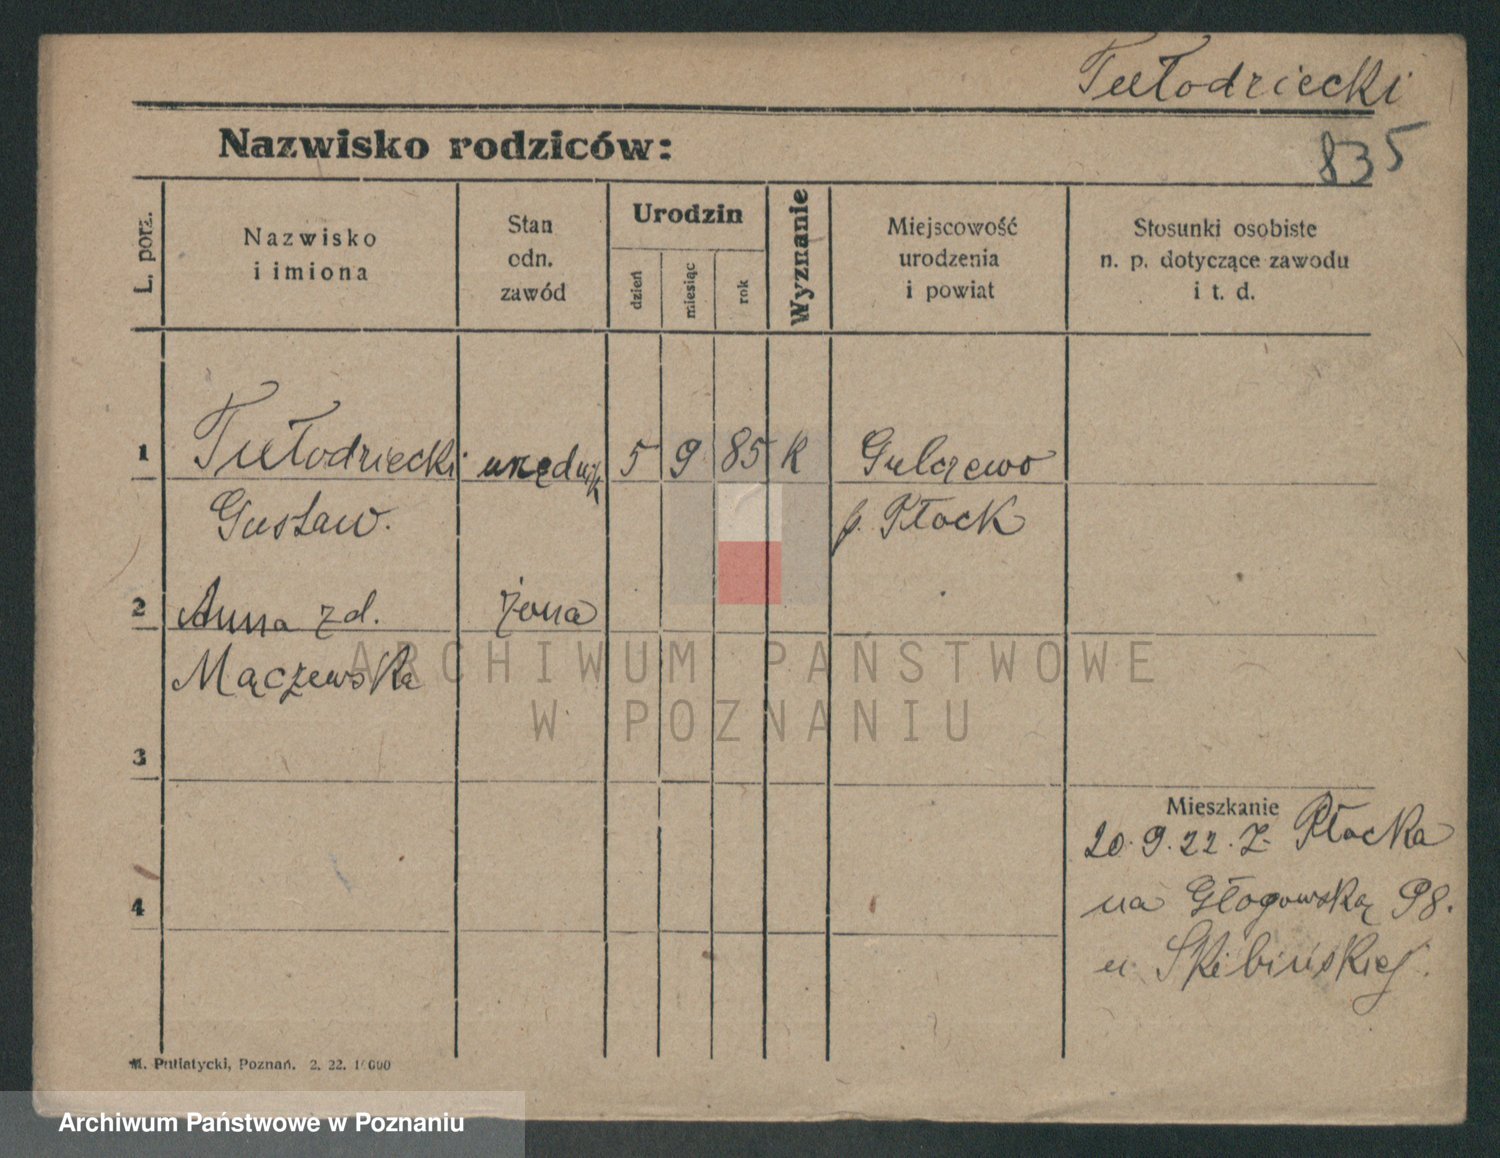 Tułodziecki
Nazwisko rodziców:
835
L. porz.
Nazwisko
i imiona
Stan
odn.
zawód
Urodzin
dzień
miesiąc
rok
Wyznanie
Miejscowość
urodzenia
i powiat
Stosunki osobiste
n. p. dotyczące zawodu
i t. d.
1 Tułodziecki urzędnik 5 9 85 K Gulczewo
Gustaw. p. Płock
2 Anna zd. żona
Mączewska
ARCHIWUM PAŃSTWOWE
W POZNANIU
3
Mieszkanie
20.9.22. Z. Płocka
na Głogowską 98.
4
u Skibińskiej.
M. Putiatycki, Poznań. 2. 22. 1000
Archiwum Państwowe w Poznaniu